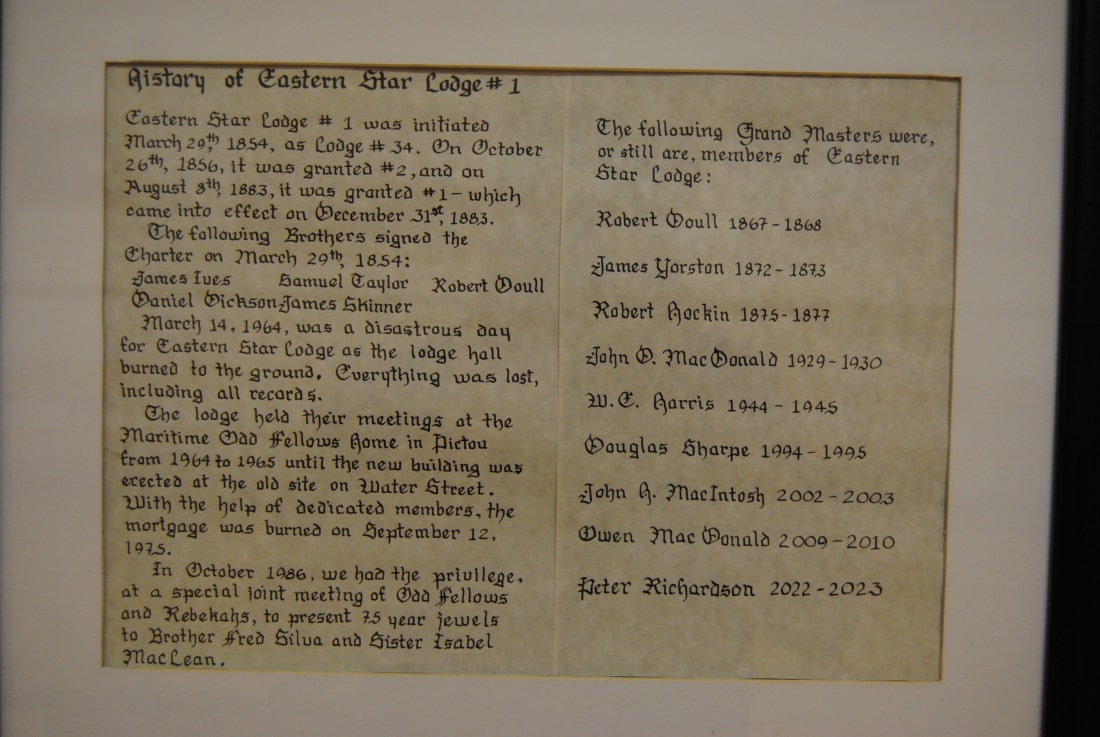 History of Eastern Star Lodge # 1
Eastern Star Lodge # 1 was initiated
March 29th, 1854, as Lodge # 34. On October
26th, 1856, it was granted #2, and on
August 8th, 1883, it was granted #1 - which
came into effect on December 31st, 1883.
The following Brothers signed the
Charter on March 29th, 1854:
James Ives Samuel Taylor Robert Doull
Daniel Dickson James Skinner
March 14, 1964, was a disastrous day
for Eastern Star Lodge as the lodge hall
burned to the ground. Everything was lost,
including all records.
The lodge held their meetings at the
Maritime Odd Fellows Home in Pictou
from 1964 to 1965 until the new building was
erected at the old site on Water Street.
With the help of dedicated members, the
mortgage was burned on September 12,
1975.
In October 1986, we had the privilege,
at a special joint meeting of Odd Fellows
and Rebekahs, to present 75 year jewels
to Brother Fred Silva and Sister Isabel
MacLean.
The following Grand Masters were,
or still are, members of Eastern
Star Lodge:
Robert Doull 1867 - 1868
James Yorston 1872 - 1873
Robert Hockin 1875 - 1877
John D. MacDonald 1929 - 1930
W.E. Harris 1944 - 1945
Douglas Sharpe 1994 - 1995
John H. MacIntosh 2002 - 2003
Owen MacDonald 2009 - 2010
Peter Richardson 2022 - 2023